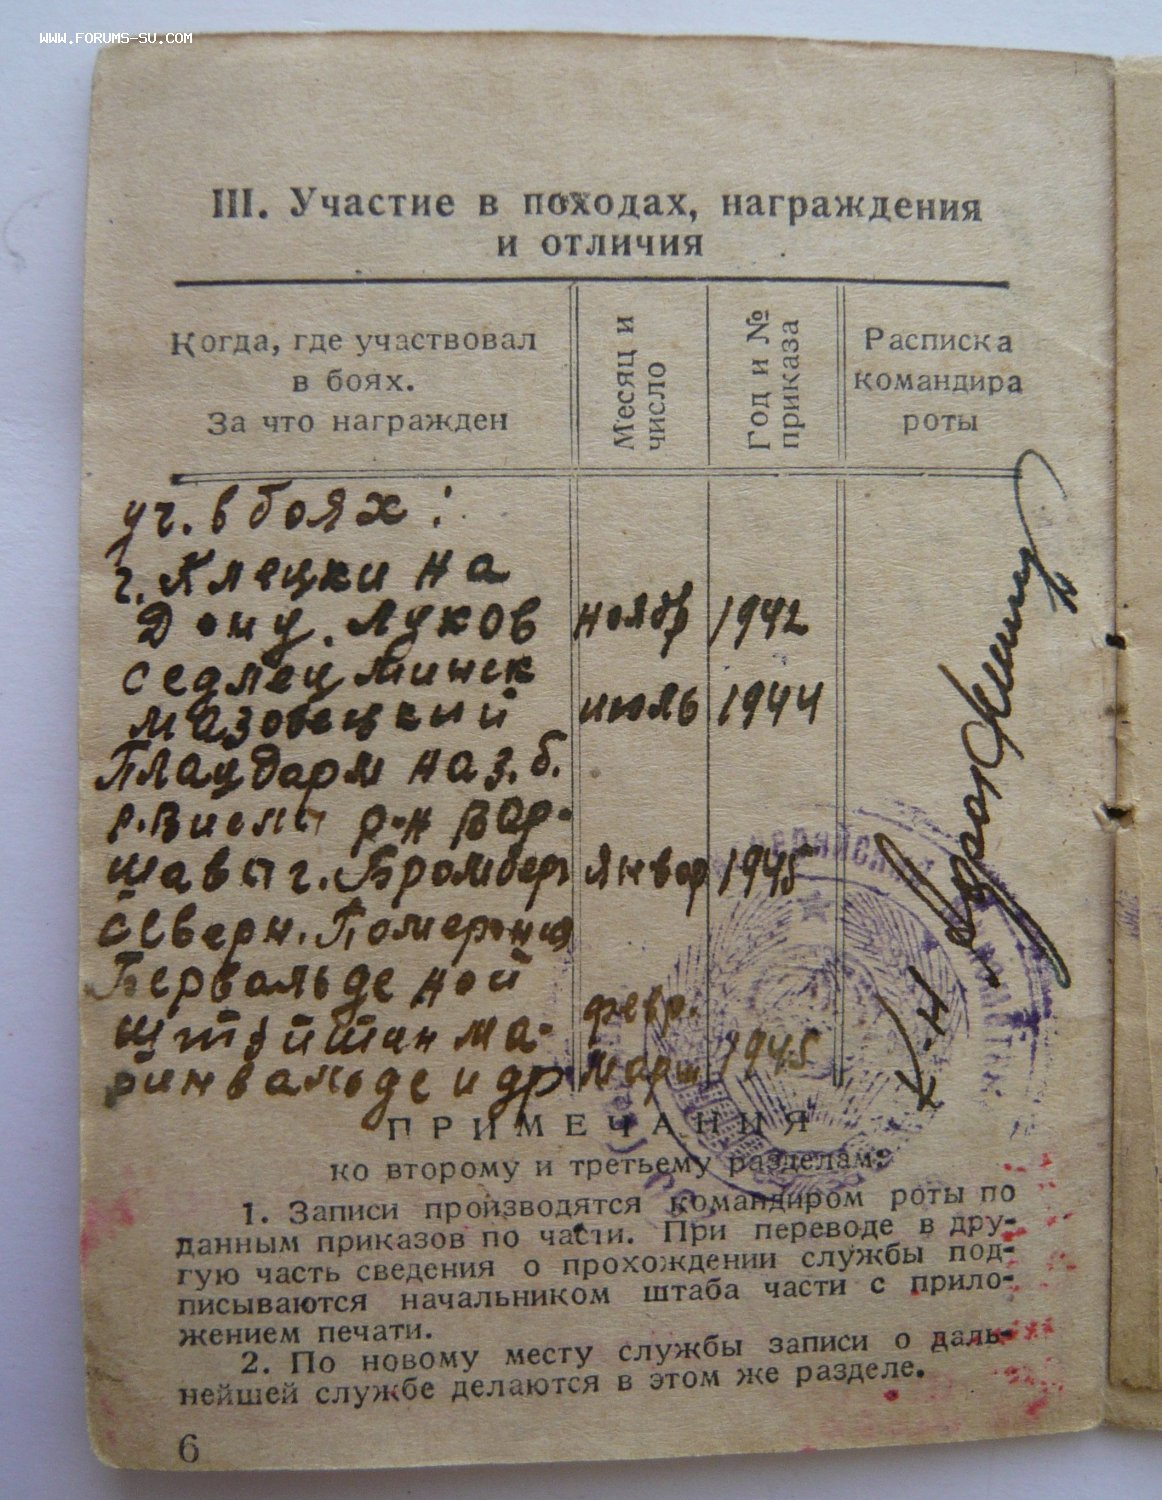 WWW.FORUMS-SU.COM
III. Участие в походах, награждения
и отличия
Когда, где участвовал
в боях.
За что награжден
Месяц и
число
Год и №
приказа
Расписка
командира
роты
уч. в боях:
г. Клецки на
Дону. Луков ноябр 1942
Седлец Минск
Мазовецкий июль 1944
Плацдарм на з. б.
р. Висла р-н Вар-
шавы г. Бромберг январ 1945
Северн. Померания
Бервальде ной
штэйтин Ма- февр.
ринвальде и др март 1945
ПРИМЕЧАНИЯ
ко второму и третьему разделам:
1. Записи производятся командиром роты по
данным приказов по части. При переводе в дру-
гую часть сведения о прохождении службы под-
писываются начальником штаба части с прило-
жением печати.
2. По новому месту службы записи о даль-
нейшей службе делаются в этом же разделе.
6